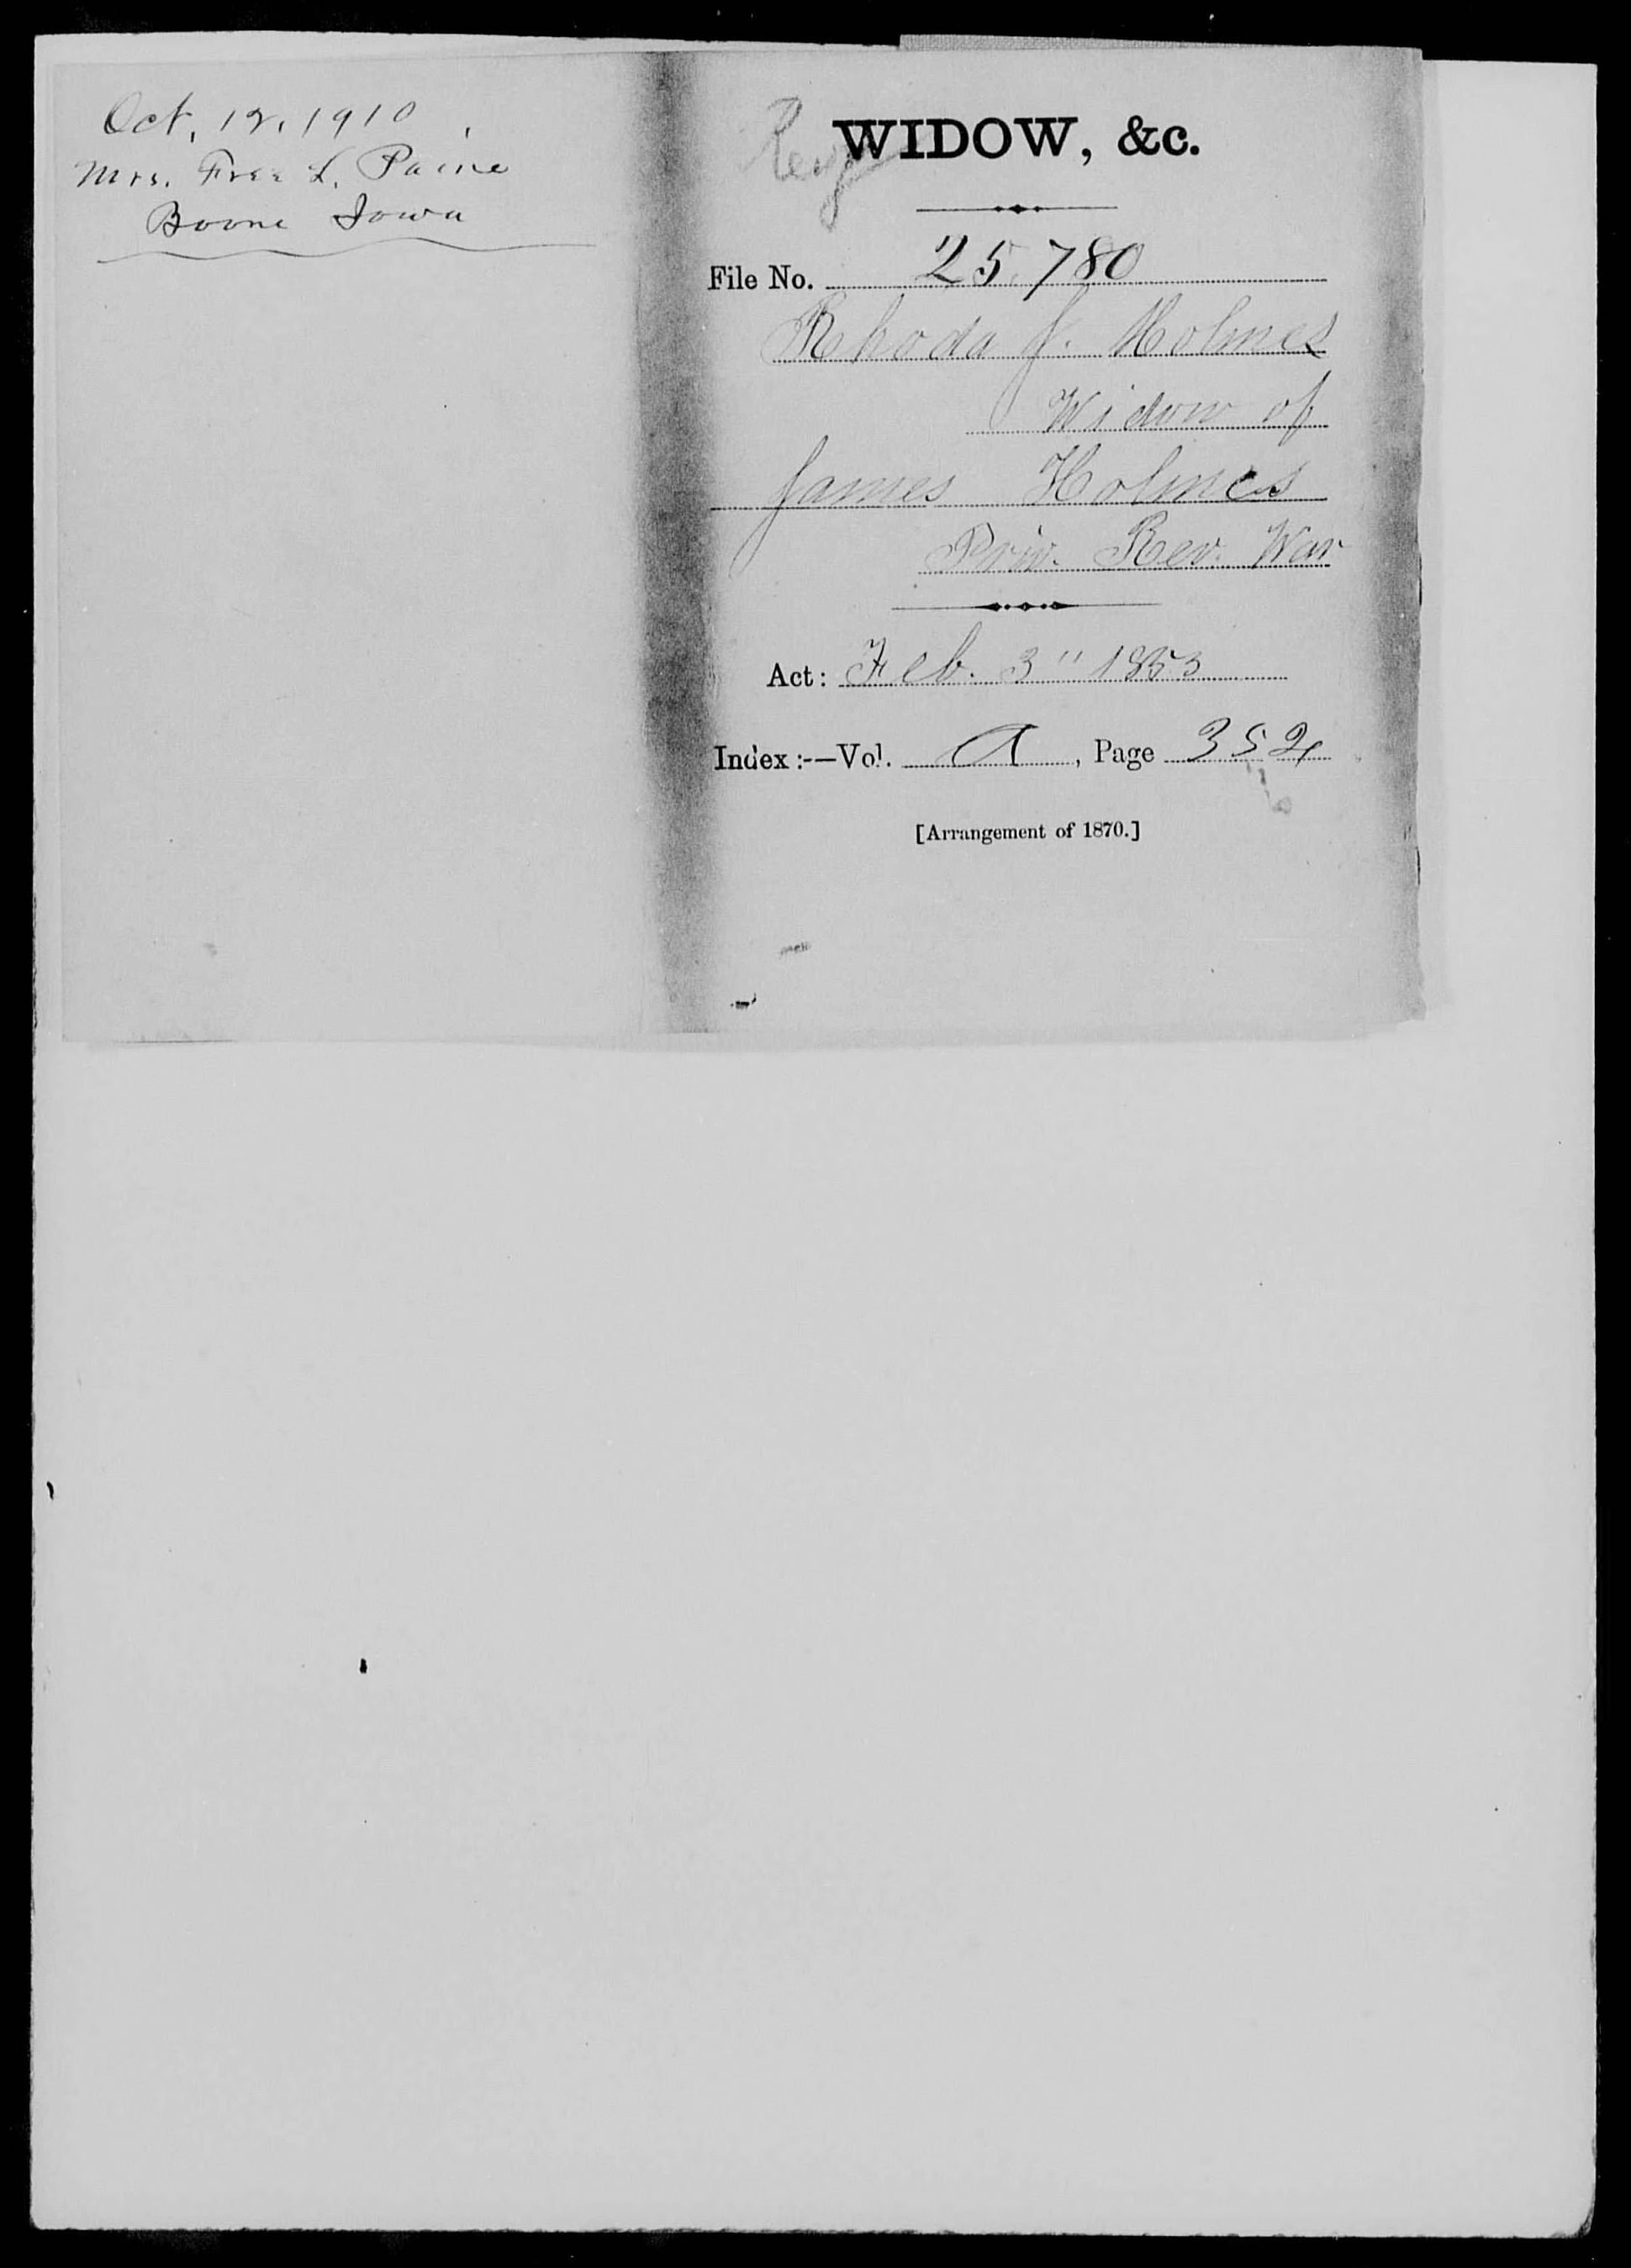 Oct. 12, 1910
Mrs. L. Paine
Boone Iowa
Rev
WIDOW, &c.
File No. 25,780
Rhoda J. Holmes
Widow of
James Holmes
Priv. Rev. War
Act: Feb. 3" 1853
Index:—Vol. A, Page 352
[Arrangement of 1870.]